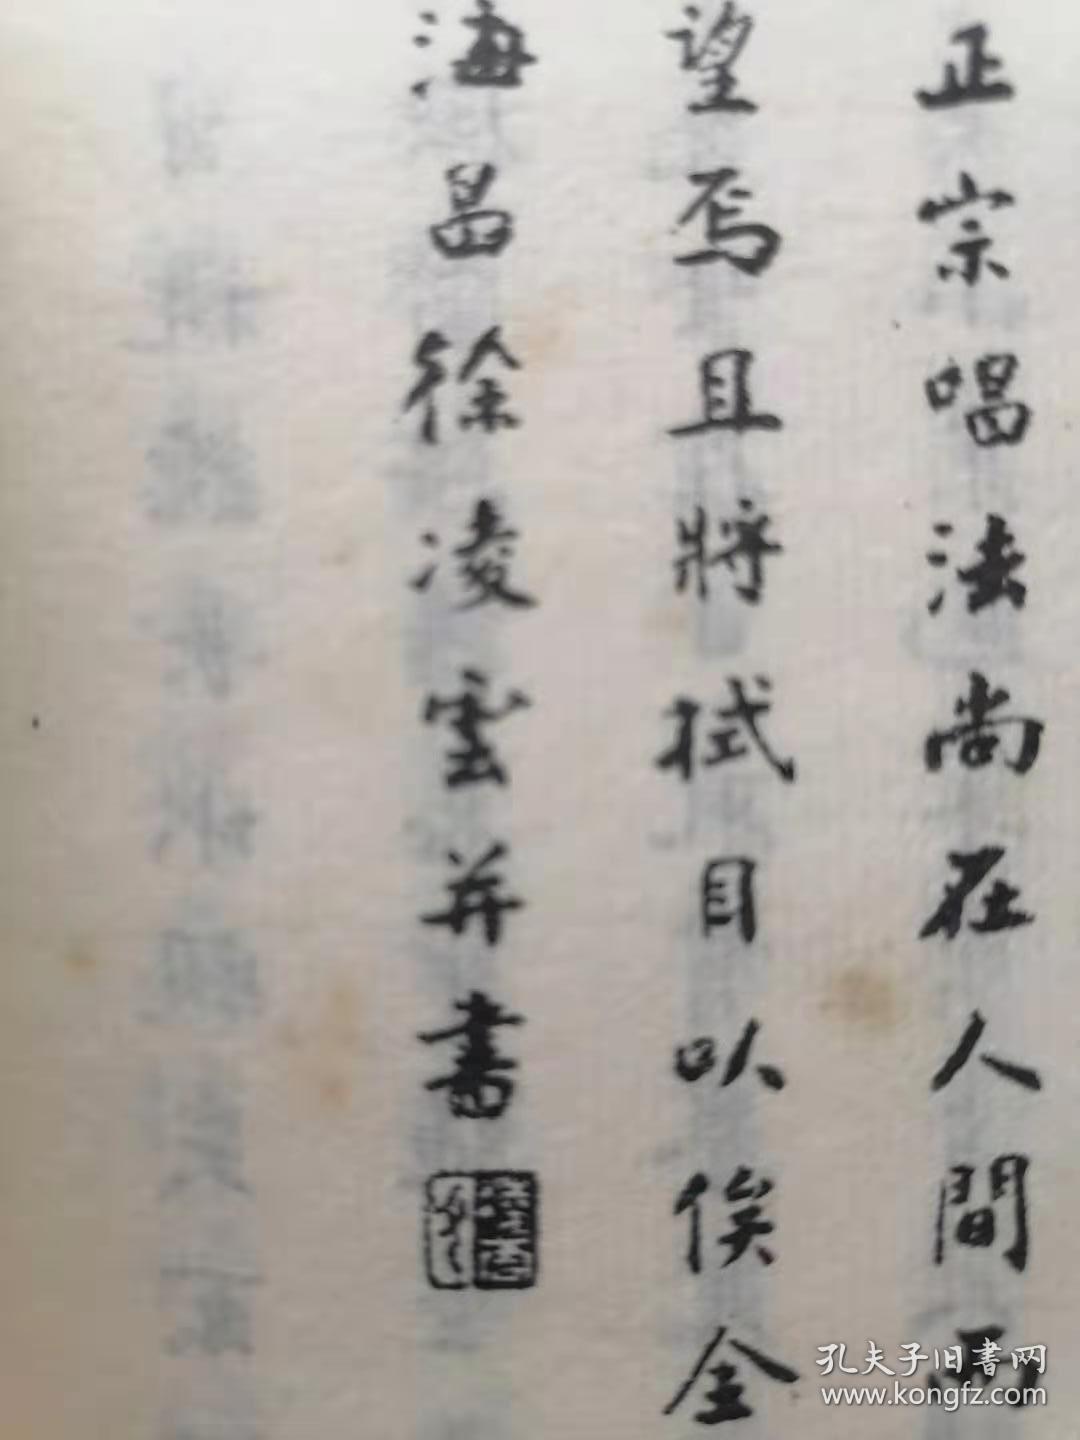 正宗唱法尚在人間而
望焉且將拭目以俟全
海昌徐凌雲并書
孔夫子旧書网
www.kongfz.com